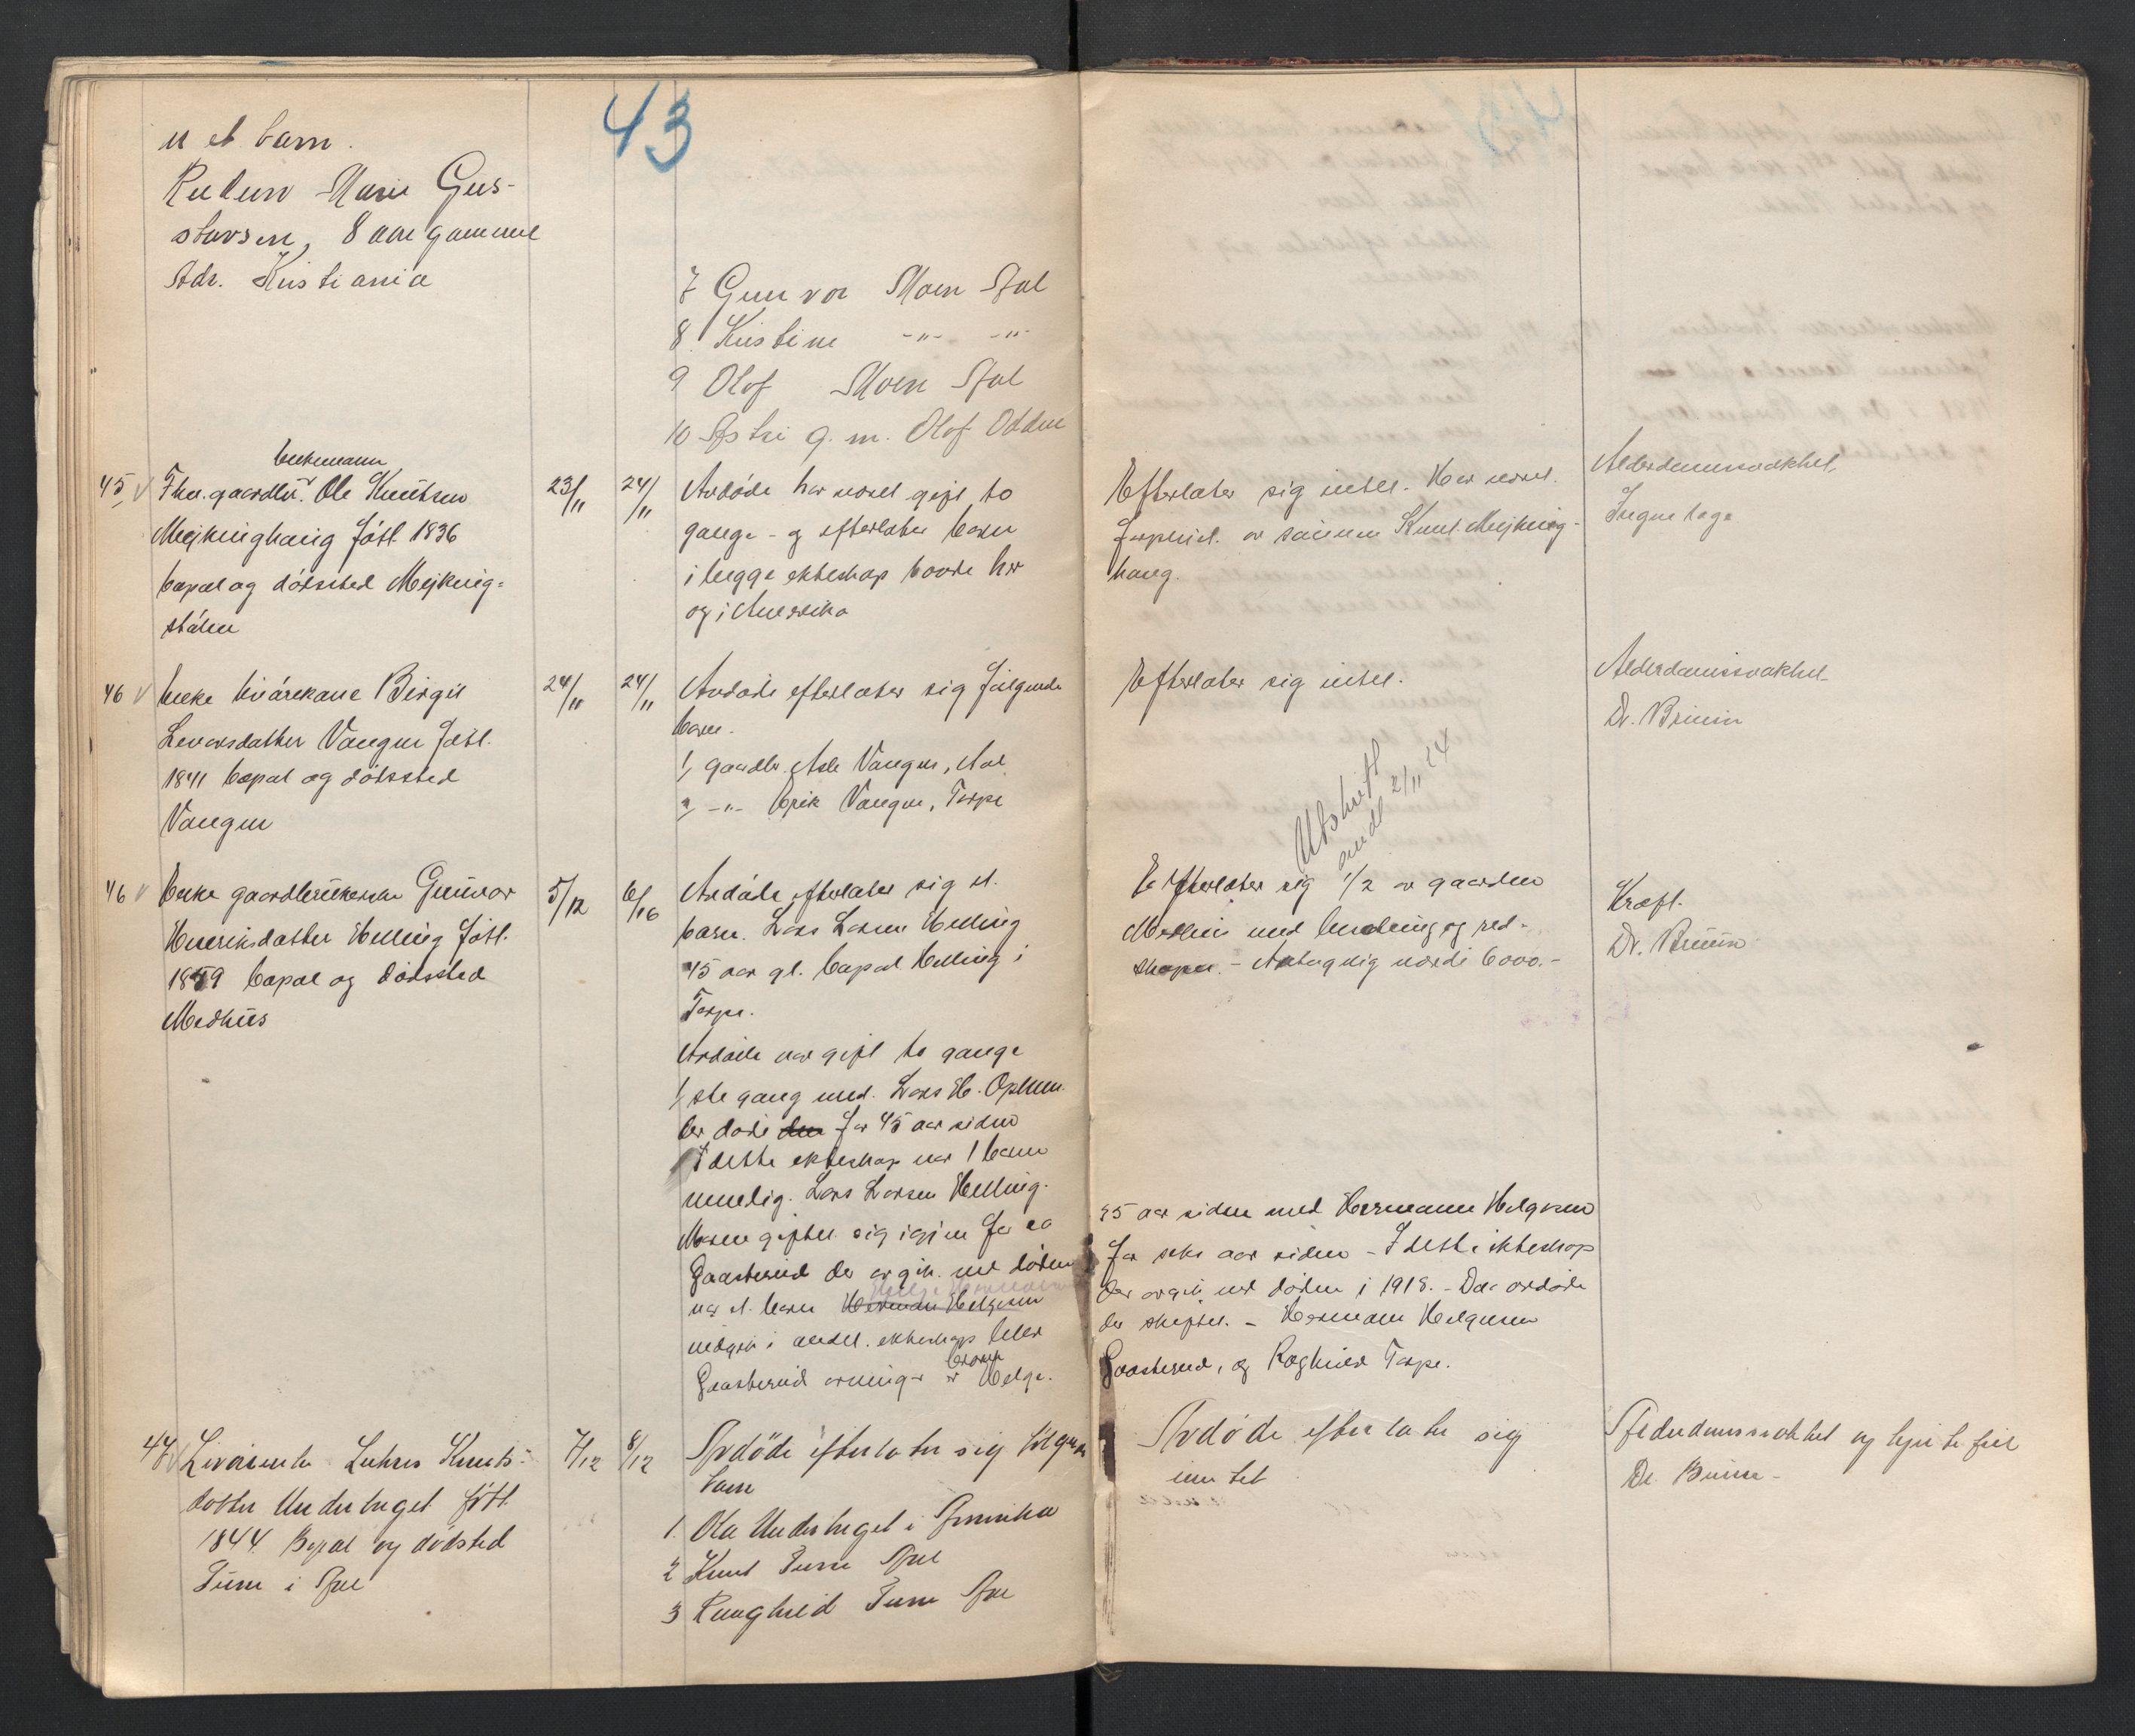 43
et barn.
Marie Gus-
stavsen, 8 aar gammel
Adr. Kristiania
7 Gunvor Moen Aal
8. Kristine -"- -"-
9 Olof Moen Aal
10 Astri g. m. Olof Odden
45 V Fhv. gaardbr. enkemann Ole Knutsen
Mejkinghaug født 1836
bopæl og dødssted Mejking-
støen
23/11 24/11
Avdøde har været gift to
gange - og efterlater barn
i begge ekteskap baade her
og i Amerika
Efterlater sig intet. Har været
forpleiet av sønnen Knut Mejking-
haug.
Alderdomssvakhet
Ingen læge
46 V Enke Birgit
Levorsdatter Vangen født
1841 bopæl og dødssted
Vangen
24/11 24/11
Avdøde efterlater sig følgende
barn.
1, gaardbr. Asle Vangen, Aal
2, -"- Erik Vangen, Torpe
Efterlater sig intet.
Alderdomssvakhet
Dr. Bruun
46 V Enke gaardbrukerske Gunvor
Henriksdatter Helling født
1859 bopæl og dødssted
Medhus
5/12 6/16
Avdøde efterlater sig et
barn. Lars Larsen Helling
45 aar gl. bopæl Helling i
Torpe.
Avdøde var gift to gange
1, ste gang med Lars H. Ophus.
der døde den for 45 aar siden
I dette ekteskap var 1 barn
nemlig. Lars Larsen Helling.
Moren giftet sig igjen for ca
Gaasterud der avgik ved døden
var et barn Herman Helgesen
indgik i andet ekteskap blev
Gaasterud arvinger er barn Helge.
Utskrift
send 2/11 24
Efterlater sig 1/2 av gaarden
Medhus med besetning og red-
skaper. - Antagelig værdi 6000.-
Kræft.
Dr. Bruun
35 aar siden med Hermann Helgesen
for seks aar siden - I dette ekteskap
der avgik ved døden i 1918. - Da avdøde
der skiftet. - Hermann Helgesen
Gaasterud, og Ragnhild Torpe.
47 V Livørsenke Knuts-
datter Underberget født
1844. Bopæl og dødsted
Tune i Aal
7/12 8/12
Avdøde efterlater sig følgende
barn
1. Ola Underberget i Amerika
2 Knut Tune Aal
3 Raaghild Tune Aal
Avdøde efterlater sig
intet
Alderdomssvakhet og hjertefeil
Dr. Bruun -